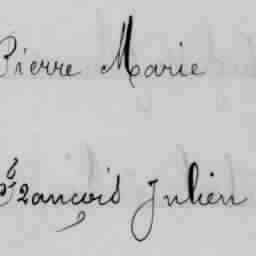 Pierre Marie
François Julien